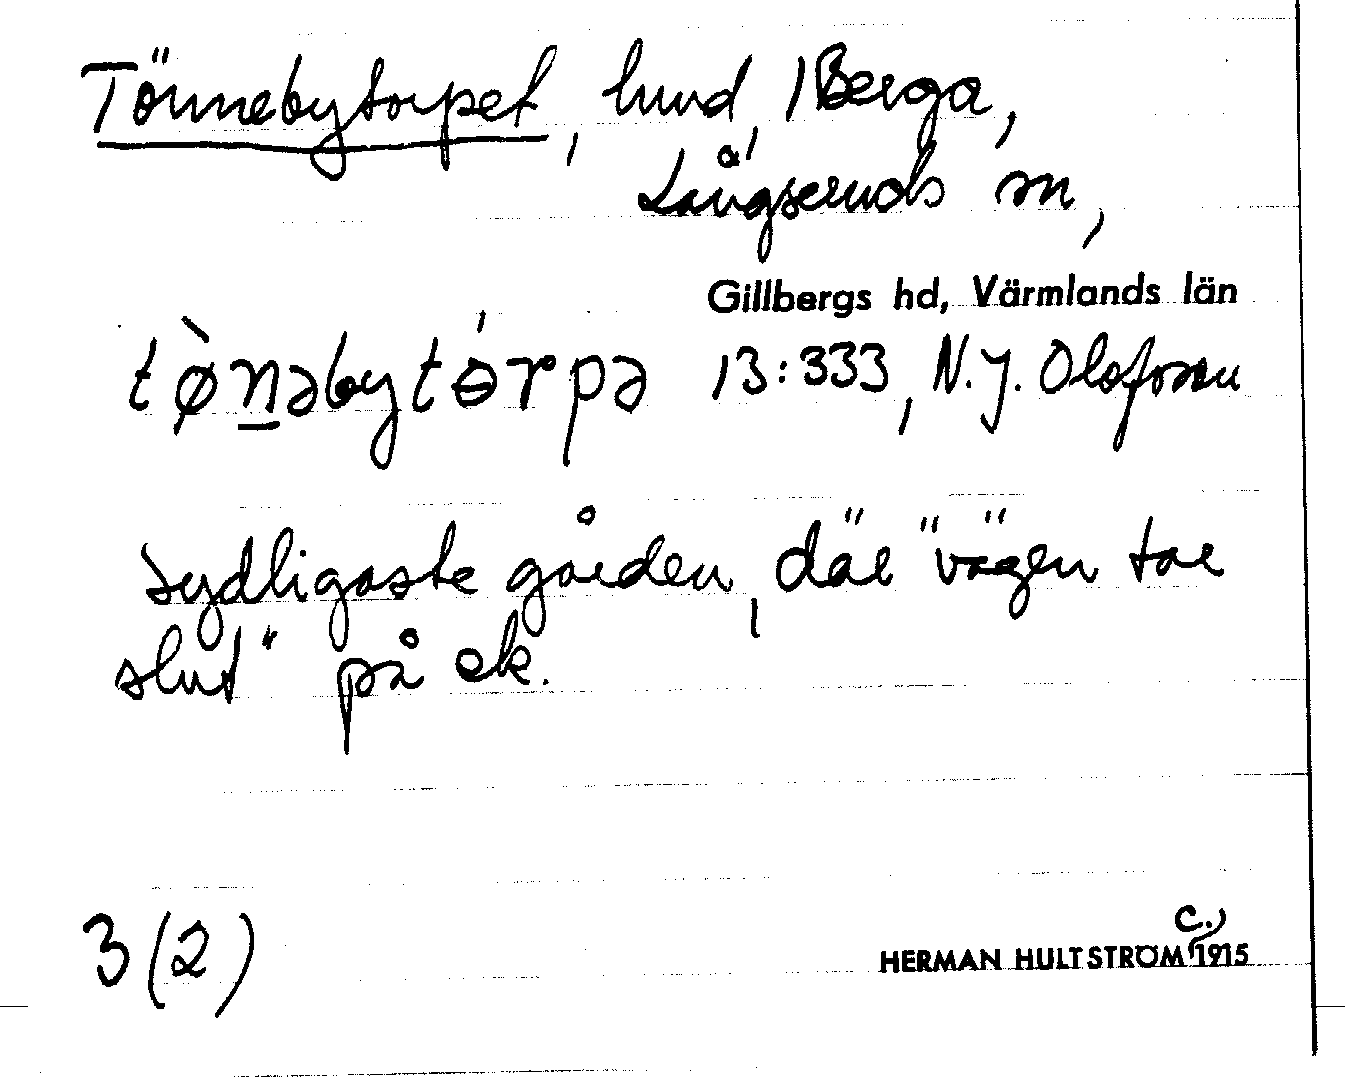 Tönnebytorpet, hund, /Berga,
Långseruds sn,
Gillbergs hd, Värmlands län
tø̀n̲əbytɵ́rpə 13:333, N.J. Olofsson
sydligaste gården, där "vägen tar
slut" på ek.
3(2) HERMAN HULTSTRÖM c., 1915